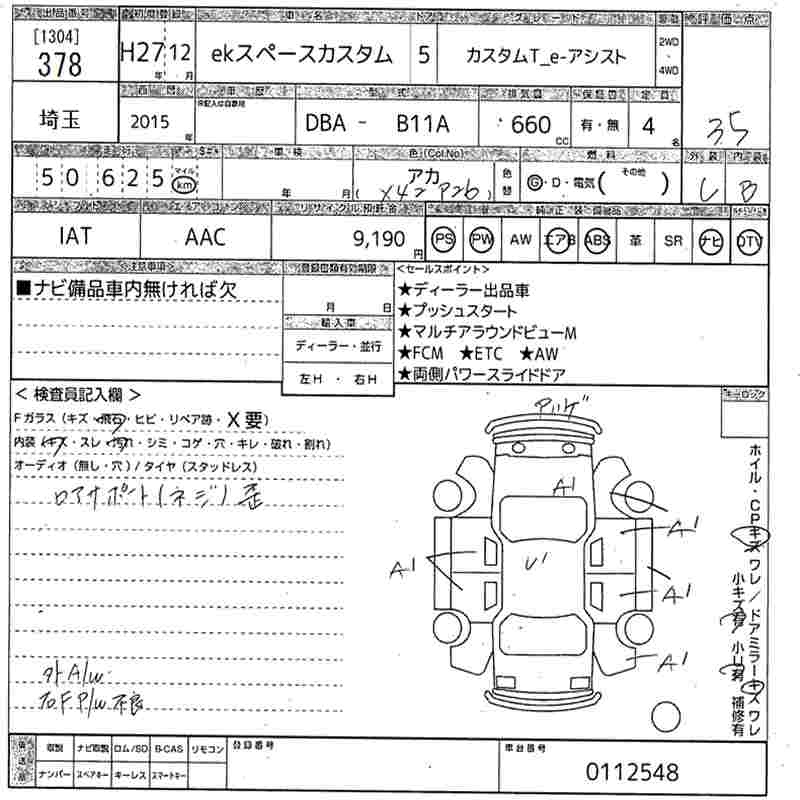 出品番号 初度登録 車名 ドア グレード 駆動 評価点
[1304]
378
H27 年 12 月
ekスペースカスタム
5
カスタムT_e-アシスト
2WD
・
4WD
3.5
車歴 型式 排気量 保証書 定員
埼玉
2015 年
未記入は自家用
DBA - B11A
660 cc
有・無
4 名
車検 色(Col.No) 燃料 外装 内装
50625 マイル km
年 月
アカ
(X42 P26)
色替
G・D・電気( その他 )
C
B
エアコン リサイクル預託金 純正装備品
IAT
AAC
9,190 円
PS PW AW エアB ABS 革 SR ナビ DTV
注意事項
■ナビ備品車内無ければ欠
登録書類有効期限
月 日
輸入車
ディーラー・並行
左H ・ 右H
<セールスポイント>
★ディーラー出品車
★プッシュスタート
★マルチアラウンドビューM
★FCM ★ETC ★AW
★両側パワースライドドア
< 検査員記入欄 >
Fガラス(キズ・飛石・ヒビ・リペア跡・X要)
内装(キズ・スレ・汚れ・シミ・コゲ・穴・キレ・破れ・割れ)
オーディオ(無し・穴)/タイヤ(スタッドレス)
ロアサポート(ネジ)歪
外A/W
右F P/W不良
アゲ
A1
A1
A1
U1
A1
A1
キーロック
ホイル・CPキズワレ/ドアミラーキズワレ
小キズ有 小U有 補修有
後送品
取説 ナビ取説 ロム/SD B-CAS リモコン
ナンバー スペアキー キーレス スマートキー
登録番号
車台番号
0112548